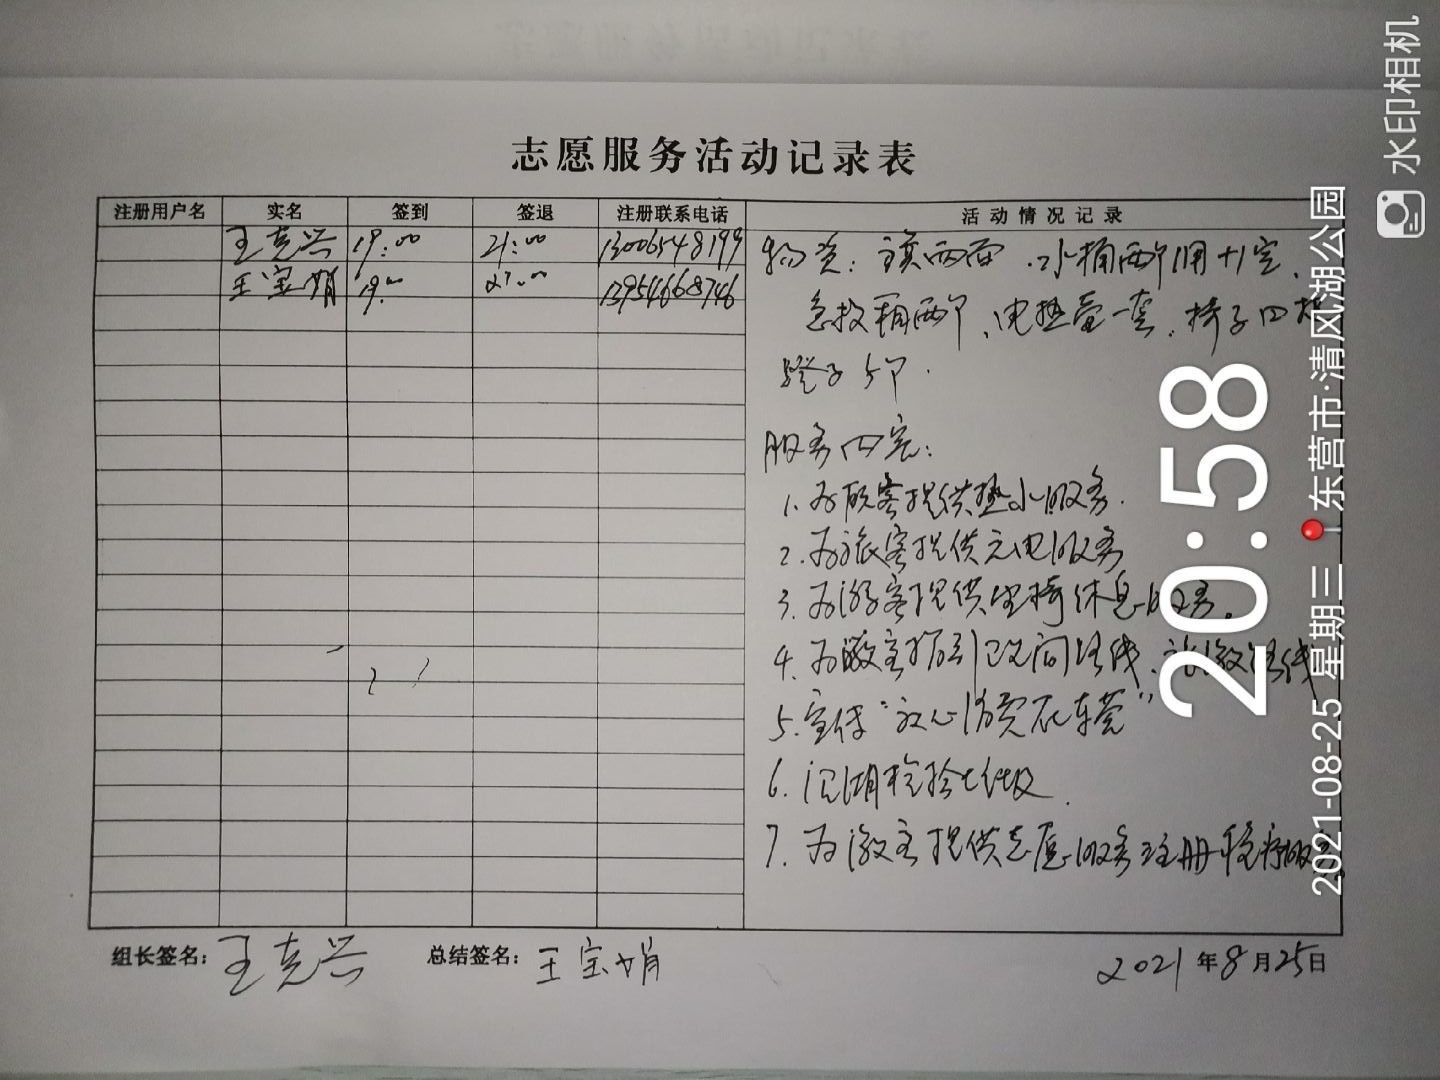 志愿服务活动记录表
注册用户名 实名 签到 签退 注册联系电话 活动情况记录
王克兴 19:00 21:00 13006548199
王宝娟 19:00 21:00 13954668746
物资：旗两面、水桶两个
急救箱两个、电热壶一套、椅子四把
凳子5个.
服务内容：
1.为顾客提供热水服务.
2.为旅客提供充电服务
3.为游客提供坐椅休息服务。
4.为游客指引卫生间路线、游览路线
5.宣传“放心消费在东营”
6.沿湖捡拾垃圾.
7.为游客提供志愿服务注册
组长签名：王克兴 总结签名：王宝娟 2021年8月25日
水印相机
东营市·清风湖公园
20:58
2021-08-25 星期三